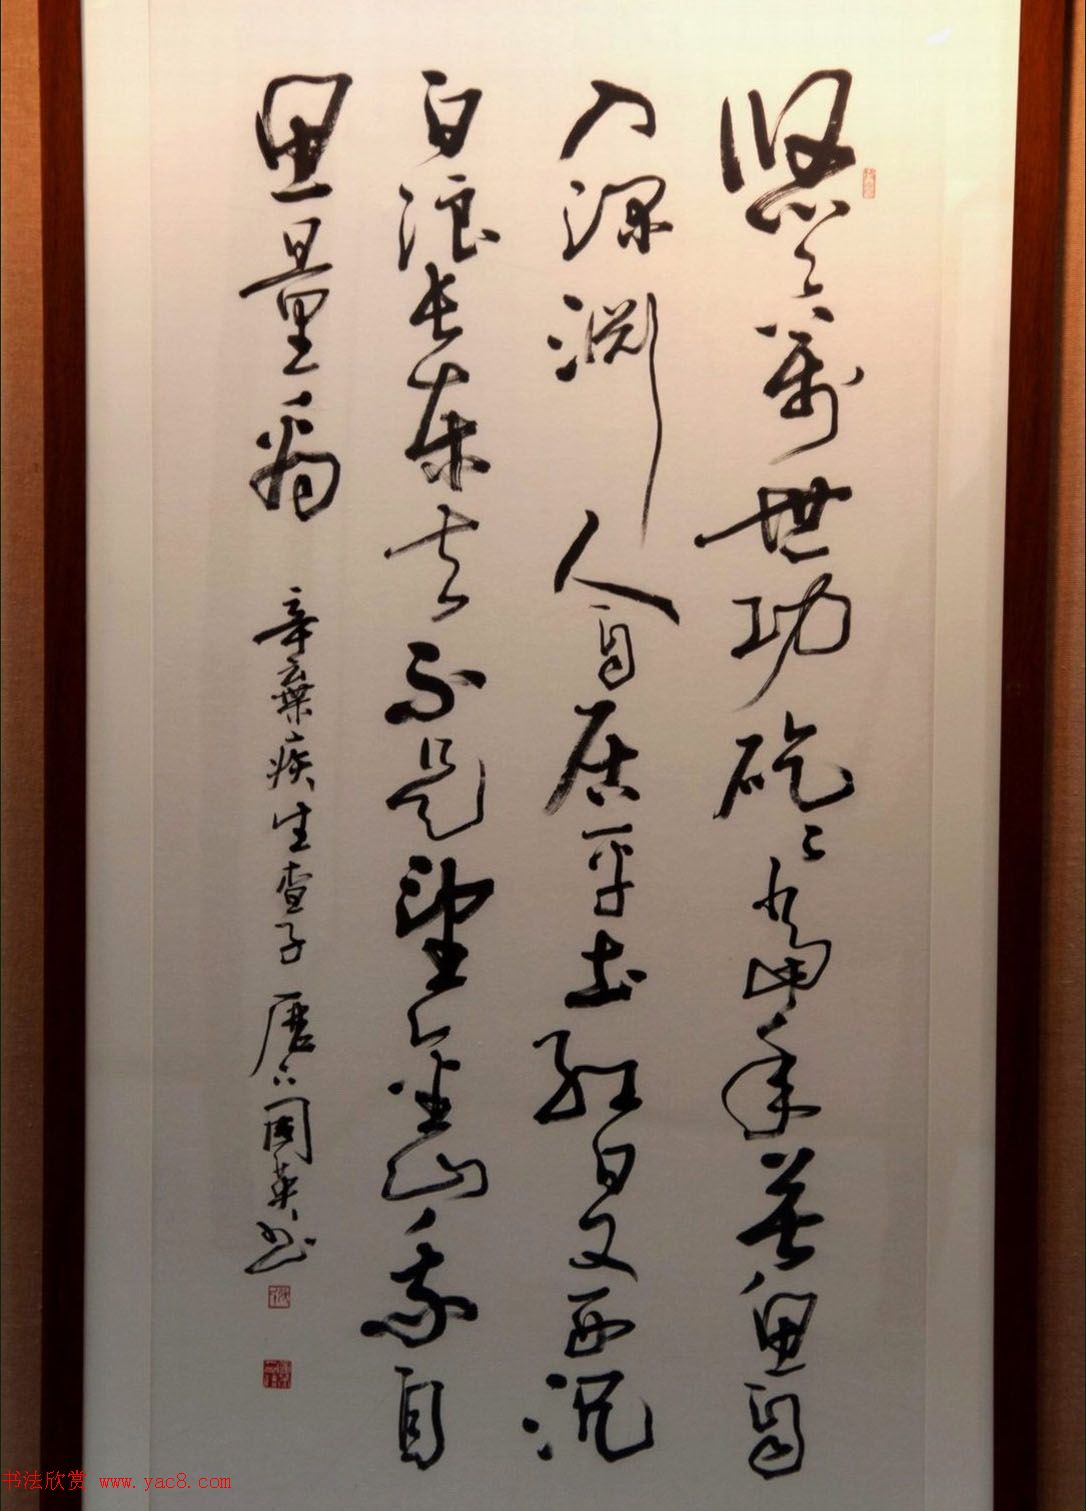 悠々萬世功矻々當年苦魚自
入深淵人自居平土紅日又西沉
白浪長東去不是望金山我自
思量禹 辛棄疾生查子 英书
书法欣赏 www.yac8.com